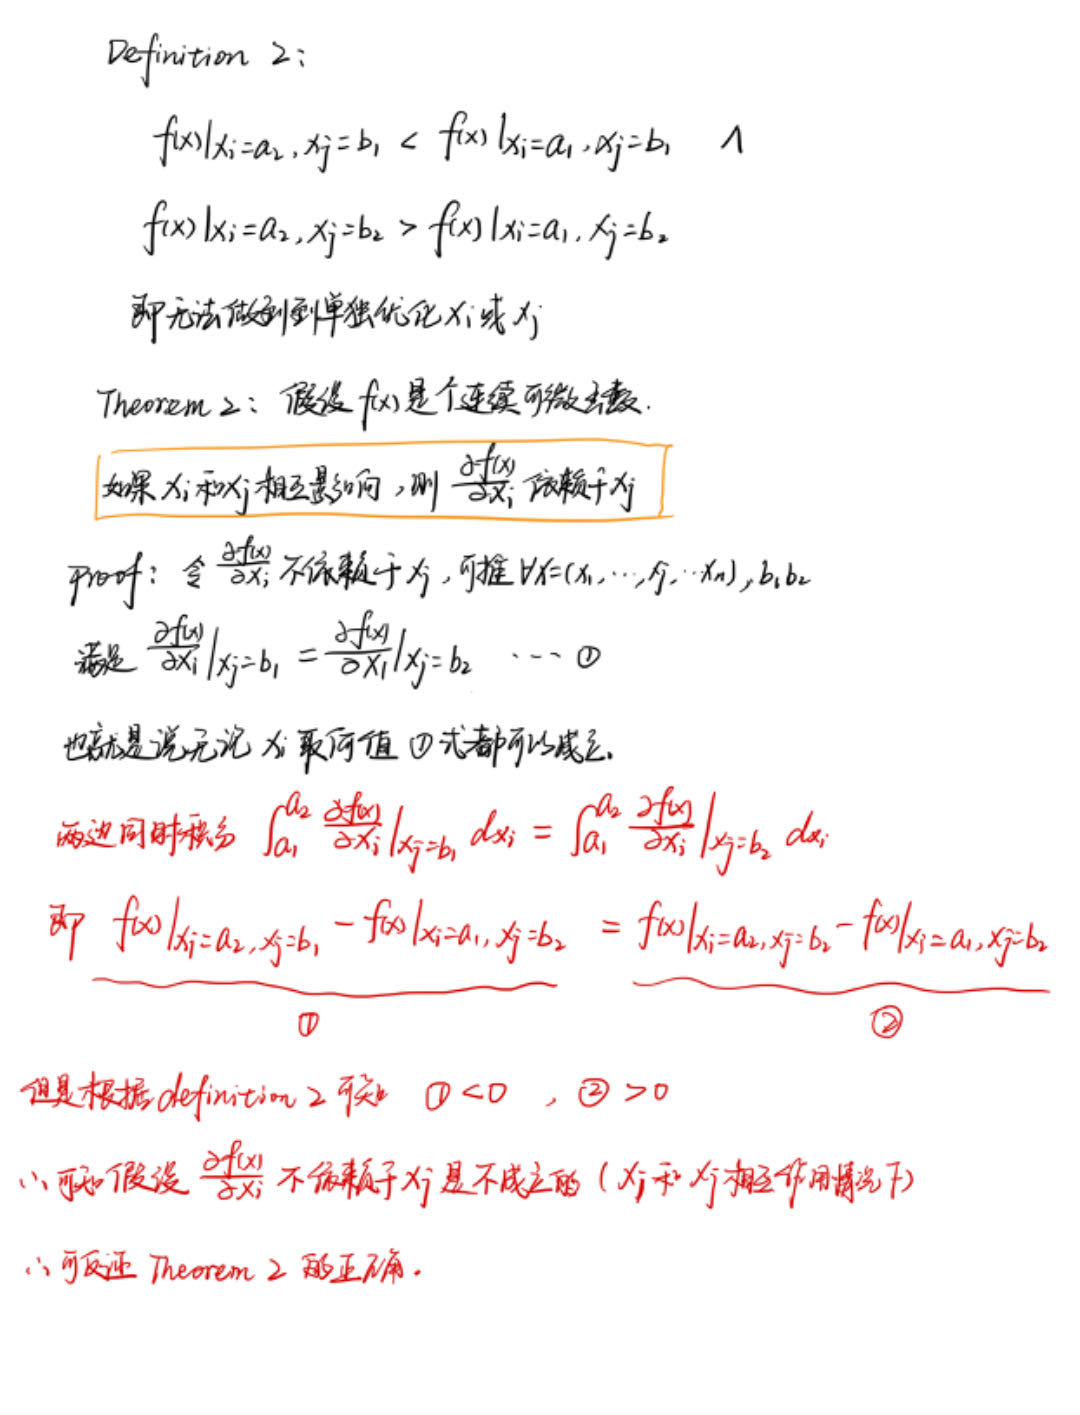 Definition 2:
f(x)|xi=a2, xj=b1 < f(x)|xi=a1, xj=b1 ∧
f(x)|xi=a2, xj=b2 > f(x)|xi=a1, xj=b2
即无法做到到单独优化xi或xj
Theorem 2: 假设f(x)是个连续可微函数.
如果xi和xj相互影响,则 ∂f(x)/∂xi 依赖于xj
proof: 令 ∂f(x)/∂xi 不依赖于xj,可推 ∀x=(x1,…,xj,…xn), b1b2
满足 ∂f(x)/∂xi|xj=b1 = ∂f(x)/∂x1|xj=b2 …… ①
也就是说无论xi取何值①式都可以成立.
两边同时积分 ∫a1^a2 ∂f(x)/∂xi|xj=b1 dxi = ∫a1^a2 ∂f(x)/∂xi|xj=b2 dxi
即 f(x)|xi=a2, xj=b1 - f(x)|xi=a1, xj=b2 = f(x)|xi=a2, xj=b2 - f(x)|xi=a1, xj=b2
① ②
但是根据definition 2可知 ①<0 , ②>0
∴可知假设 ∂f(x)/∂xi 不依赖于xj是不成立的(xj和xj相互作用情况下)
∴可反证 Theorem 2 的正确.